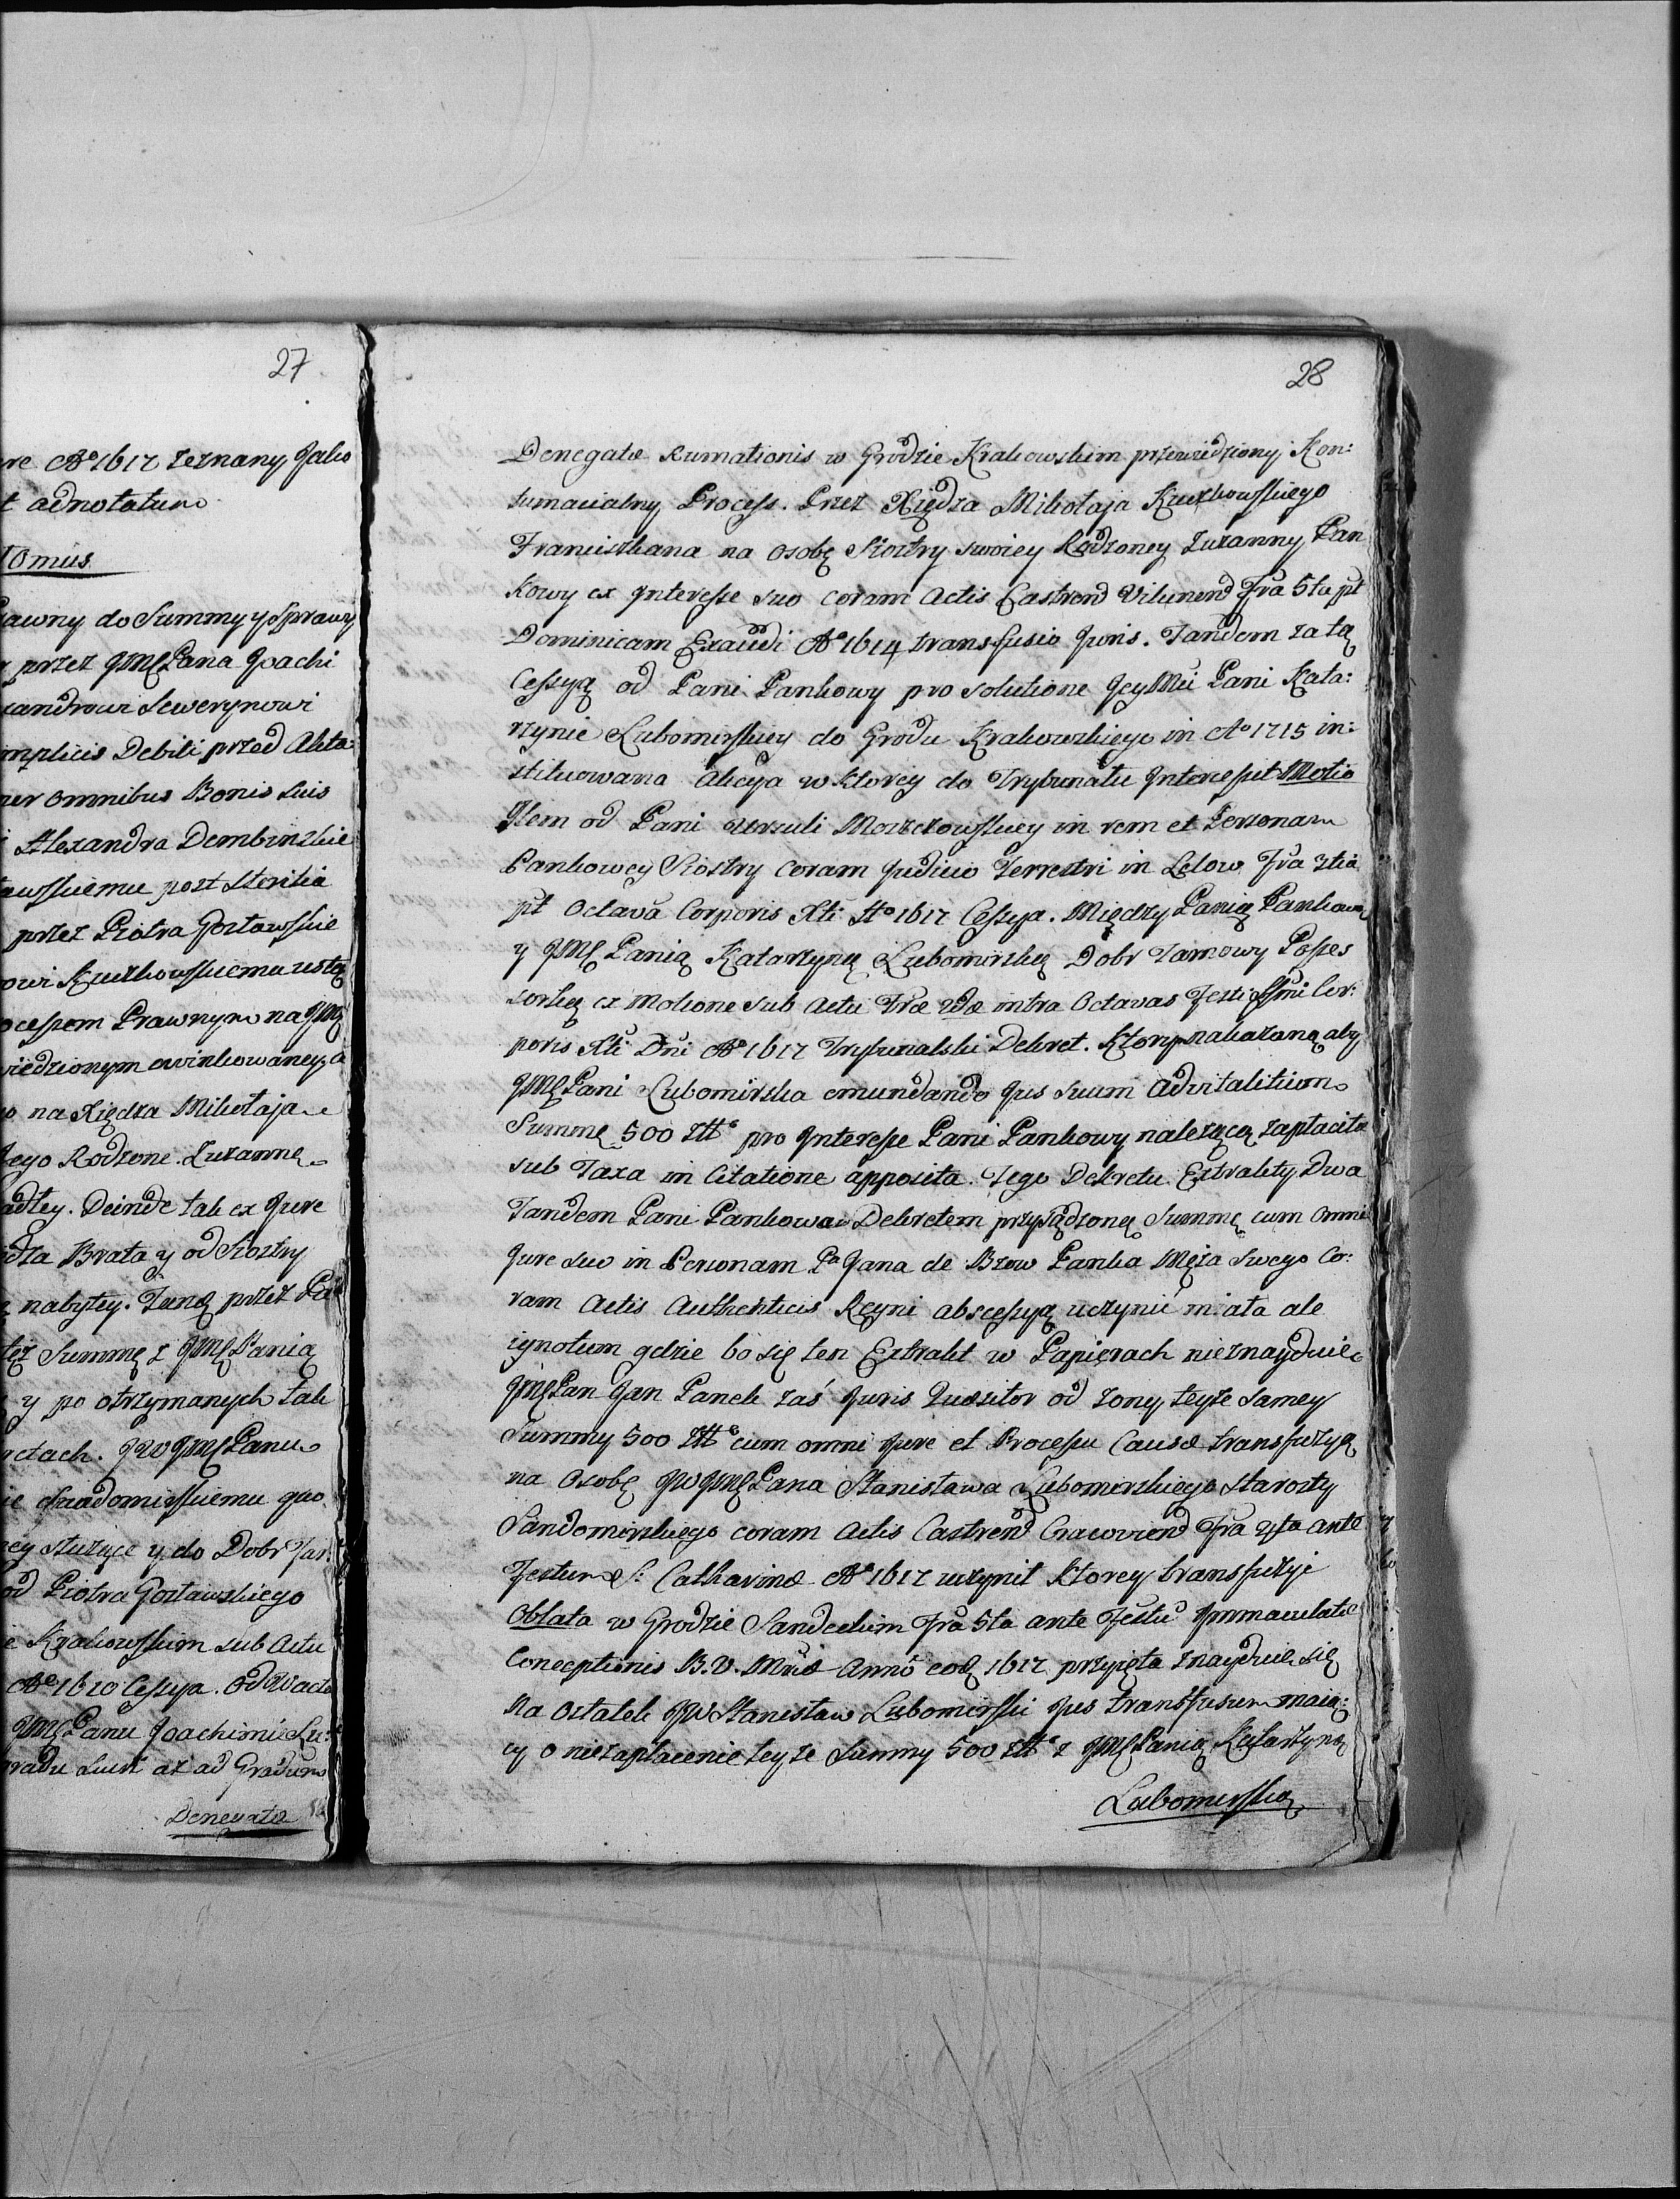 27
re Aº 1617 zeznany Jako
t adnotatum
Tomus
awny do Summy y Sprawy
przez JMę Pana Joachi
xandrowi Sewerynowi
mplicis Debiti przed Akta
er omnibus Bonis suis
Alexandra Dembinskie
awskiemu post sterilia
przez Piotra Gosławskie
owi Kuczkowskiemu ustą
ocessem Prawnym na JMę
wiedzionym ewinkowaney, a
na Xiędza Mikołaja
iego Rodzone Zuzannę
adłey. Deinde tak ex Jure
dza Brata y od Siostry
nabytey. Taną przez Pa
też Summę z JMę Panią
y po otrzymanych tak
retach. JW JMę Panu
ie Sandomirskiemu quo
ey służące y do Dobr Jar:
od Piotra Gosławskiego
e Krakowskim sub Actu
Aº 1610 Cessya. Od Xiact
JMę Panu Joachimi Lu:
radu Lucit az ad Gradum
Denegatæ
28
Denegatæ Rumationis w Grodzie Krakowskim przewiedziony Kon:
tumacialny Process. Przez Xiędza Mikołaja Kuczkowskiego
Franciszkana na osobę Siostry swoiey Rodzoney Zuzanny Pan
kowy ex Interesse suo coram Actis Castrend Vilunend Fra 5ta pt
Dominicam Exaudi Aº 1614 transfusio Juris. Tandem za tę
Cessyą od Pani Pankowy pro solutione JeyMci Pani Kata:
rzynie Lubomirskiey do Grodu Krakowskiego in Aº 1715 in:
stituowana Akcya w ktorey do Trybunału Intercessit Motio
Item od Pani Urszuli Morzczowskiey in rem et Personam
Pankowey Siostry coram Judicio Terrestri in Lelow Fra 3tia
pt Octavā Corporis Xti Aº 1617 Cessya. Między Panią Pankową
y JMę Panią Katarzyną Lubomirską Dobr Jamowy Posses
sorką ex Motione sub Actu Fræ 2dæ intra Octavas Festi Ssmi Cor:
poris Xti Dni Aº 1617 Trybunalski Dekret. Ktorym nakazano, aby
JMę Pani Lubomirska emundando Jus suum advitalitium
Summę 500 Złłc pro Interesse Pani Pankowy należącą zapłaciła
sub Taxa in Citatione apposita. Tego Dekretu Extrakty Dwa
Tandem Pani Pankowa Dekretem przysądzonę Summę cum omni
Jure suo in Personam Pa Jana de Brzow Panka Męża swego Co:
ram Actis Authenticis Regni abscessyą uczynić miała ale
ignotum gdzie bo się ten Extrakt w Papierach nieznayduie
JMę Pan Jan Panek zaś Juris Quæsitor od żony teyże samey
Summy 500 Złłc cum omni Jure et Processu Causæ transfuzyą
na Osobę JW JMę Pana Stanisława Lubomirskiego Starosty
Sandomirskiego coram Actis Castrend Cracoviend Fra 4ta ante
Festum S: Catharinæ Aº 1617 uczynił ktorey transfuzyi
Oblata w Grodzie Sandeckim Fra 5ta ante Festū Immaculatæ
Conceptionis B. V. Mriæ Annō eod 1617 przyięta znayduie się
Na Ostatek JW Stanisław Lubomirski Jus transfusum maią:
cy o niezapłacenie teyże Summy 500 Złłc z JMę Panią Katarzyną
Lubomirską